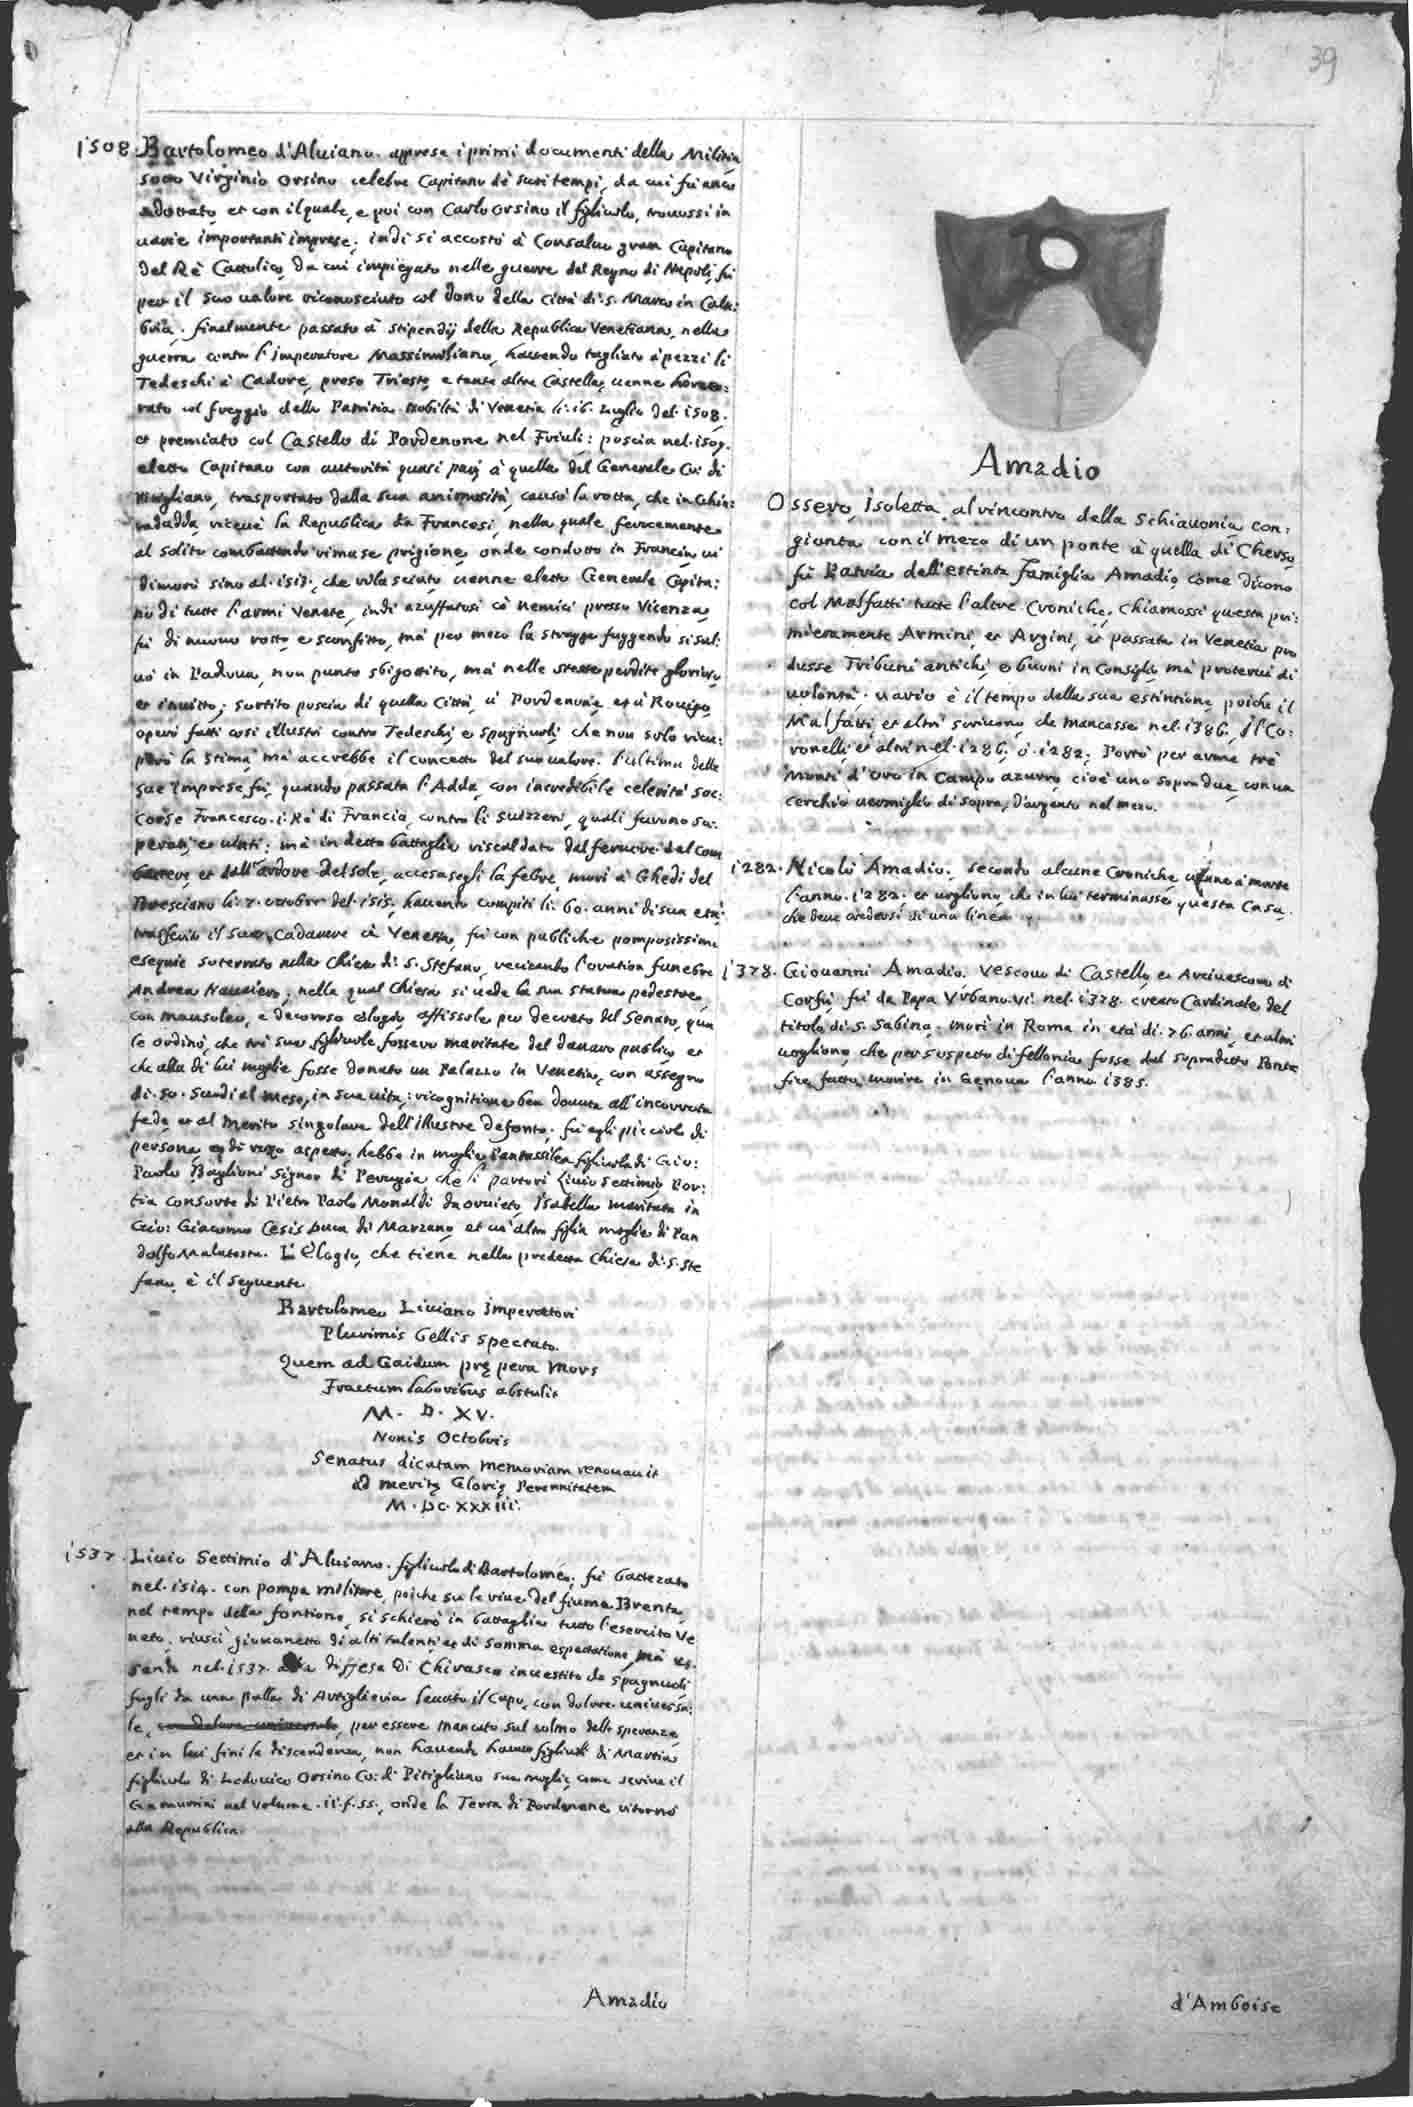 39
1508. Bartolomeo d'Aluiano. apprese i primi documenti della Militia
sotto Virginio Orsino celebre Capitano de suoi tempi, da cui fù anco
adottato, et con il quale, e poi con Carlo Orsino il figliuolo, trouossi in
uarie importanti imprese; indi si accostò à Consaluo gran Capitano
del Rè Cattolico, da cui impiegato nelle guerre del Regno di Napoli, fù
per il suo ualore riconosciuto col dono della Città di S. Marco in Cala:
bria. finalmente passato à stipendij della Republica Venetiana, nella
guerra contro l'imperatore Massimiliano, hauendo tagliato à pezzi li
Tedeschi à Cadore, preso Trieste, e tante altre Castella, uenne hono:
rato col freggio della Patritia Nobiltà di Venetia li. 16. Luglio del. 1508.
et premiato col Castello di Pordenone nel Friuli: poscia nel. 1509.
eletto Capitano con autorità quasi pari à quella del Generale Co: di
Pitigliano, trasportato dalla sua animosità, causò la rotta, che in Ghia:
radadda, riceuè la Republica da Francesi, nella quale ferocemente
al solito combattendo rimase prigione, onde condotto in Francia, ui
dimorò sino al. 1513., che rilasciato, uenne eletto Generale Capita:
no di tutte l'armi Venete, indi azuffatosi cò nemici presso Vicenza,
fù di nuouo rotto, e sconfitto, mà per mezo la stragge fuggendo si sal:
uò in Padoua, non punto sbigottito, mà nelle stesse perdite glorioso,
et inuitto; sortito poscia di quella Città, à Pordenone, et à Rouigo,
operò fatti cosi illustri contro Tedeschi, e Spagnuoli, che non solo ricu:
però la stima, mà accrebbe il concetto del suo ualore. l'ultima delle
sue imprese fù, quando passata l'Adda, con incredibile celerità soc:
corse Francesco. i. Rè di Francia, contro li Suizzeri, quali furono su:
perati, et uinti; mà in detta battaglia riscaldato dal feruore del com
battere, et dall'ardore del sole, accesasegli la febre, morì à Ghedi del
Bresciano li. 7. ottobre del. 1515., hauendo compiti li. 60. anni di sua età.
trasferito il suo Cadauere à Venetia, fù con publiche pomposissime
esequie soterrato nella Chiesa di S. Stefano, recitando l'oration funebre
Andrea Nauaiero; nella qual Chiesa si uede la sua statua pedestre,
con mausoleo, e decoroso elogio, affissole per decreto del Senato, qua
le ordinò, che trè sue figliuole fossero maritate del denaro publico, et
che alla di lui moglie fosse donato un Palazzo in Venetia, con assegno
di. 50. scudi al mese, in sua uita; ricognitione ben douuta all'incorrotta
fede, et al merito singolare dell'illustre defonto. fù egli picciolo di
persona, et di rozo aspetto, hebbe in moglie Pantassilea figliuola di Gio:
Paolo Baglioni Signor di Perugia che li partorì Liuio Settimio, Por:
tia consorte di Pietro Paolo Monaldi da Oruieto, Isabella maritata in
Gio: Giacomo Cesis Duca di Marzano, et un'altra figlia moglie di Pan
dolfo Malatesta. L'elogio, che tiene nella predetta Chiesa di S. Ste
fano, è il seguente.
Bartolomeo Liuiano imperatori
Plurimis bellis spectato.
Quem ad Gaidum prę pera Mors
Fractum laboribus abstulit
M. D. XV.
Nonis Octobris
Senatus dicatam memoriam renouauit
ad meritę Glorię Perennitatem
M. DC. XXXIII.
1537. Liuio Settimio d'Aluiano. figliuolo di Bartolomeo, fù battezato
nel. 1514. con pompa militare, poiche su le riue del fiume Brenta,
nel tempo della fontione, si schierò in battaglia tutto l'esercito Ve
neto. riuscì giouanetto di alti talenti et di somma espettatione, mà es:
sendo nel. 1537. alla diffesa di Chirasco inuestito da spagnuoli
fugli da una palla di Artiglieria leuato il Capo, con dolore uniuersa:
le, con dolore uniuersale, per essere mancato sul colmo delle speranze,
et in lui finì la discendenza, non hauendo hauuto figliuoli di Martia
figliuola di Lodouico Orsino Co: di Pitigliano sua moglie, come scriue il
Gamurrini nel volume. ii. f. 55., onde la Terra di Pordenone ritornò
alla Republica.
Amadio
Amadio
Ossero, isoletta, al rincontro della Schiauonia, con:
gionta con il mezo di un ponte à quella di Cherso,
fù Patria dell'estinta Famiglia Amadio, come dicono
col Malfatti tutte l'altre Croniche. Chiamossi questa pri:
mieramente Armini, et Argini, et passata in Venetia pro
dusse Tribuni antichi, e buoni in Consiglio, mà proterui di
uolontà. uario è il tempo della sua estintione, poiche il
Malfatti, et altri scriuono, che mancasse nel. 1386., il Co:
ronelli, et altri nel. 1286. ò. 1282. Portò per arme trè
Monti d'oro in Campo azurro, cioè uno sopra due, con un
cerchio uermiglio di sopra, d'argento nel mezo.
1282. Nicolò Amadio, secondo alcune Croniche uenne à morte
l'anno. 1282. et uogliono, che in lui terminasse questa Casa,
che deue credersi di una linea.
1378. Giouanni Amadio. Vescouo di Castello, et Arciuescouo di
Corfù, fù da Papa Vrbano. vi. nel. 1378. creato Cardinale del
titolo di S. Sabina. morì in Roma in età di. 76 anni, et altri
uogliono, che per sospetto di fellonia fosse dal sopradetto Ponte
fice fatto morire in Genoua l'anno 1385.
d'Amboise